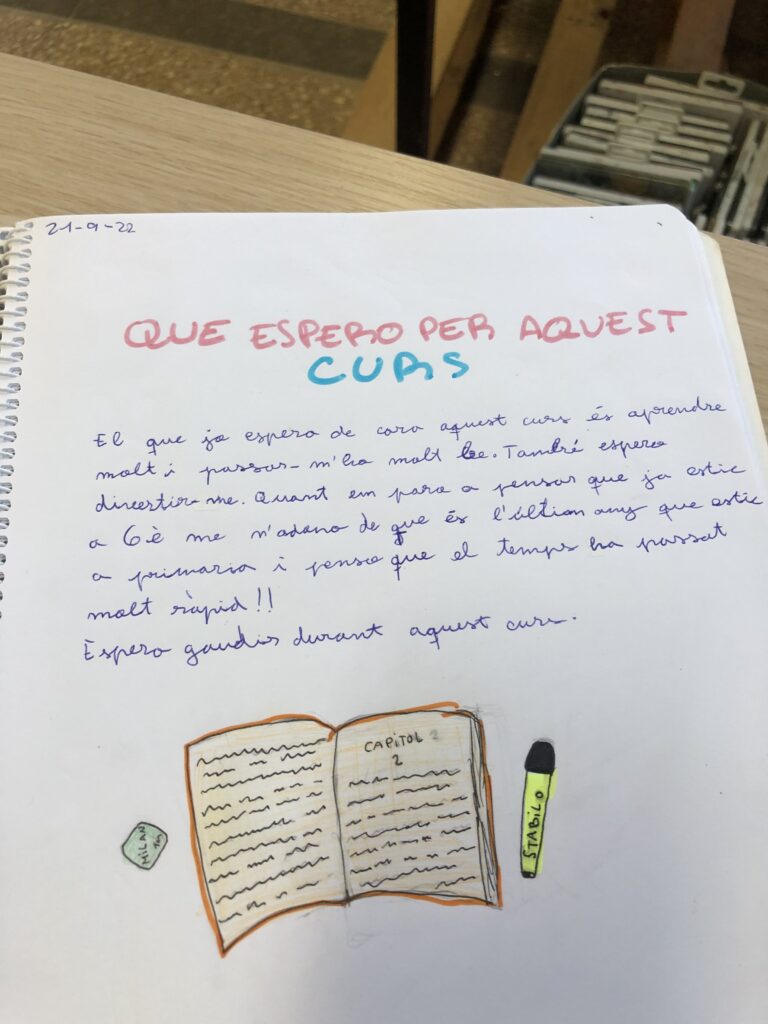 21-9-22
QUE ESPERO PER AQUEST
CURS
El que jo espero de cara aquest curs és aprendre
molt i passar-m'ho molt be. També espero
divertir-me. Quant em paro a pensar que ja estic
a 6è me n'adono de que és l'últim any que estic
a primaria i penso que el temps ha passat
molt ràpid!!
Espero gaudir durant aquest curs.
CAPITOL 2
2
MILAN
STABILO